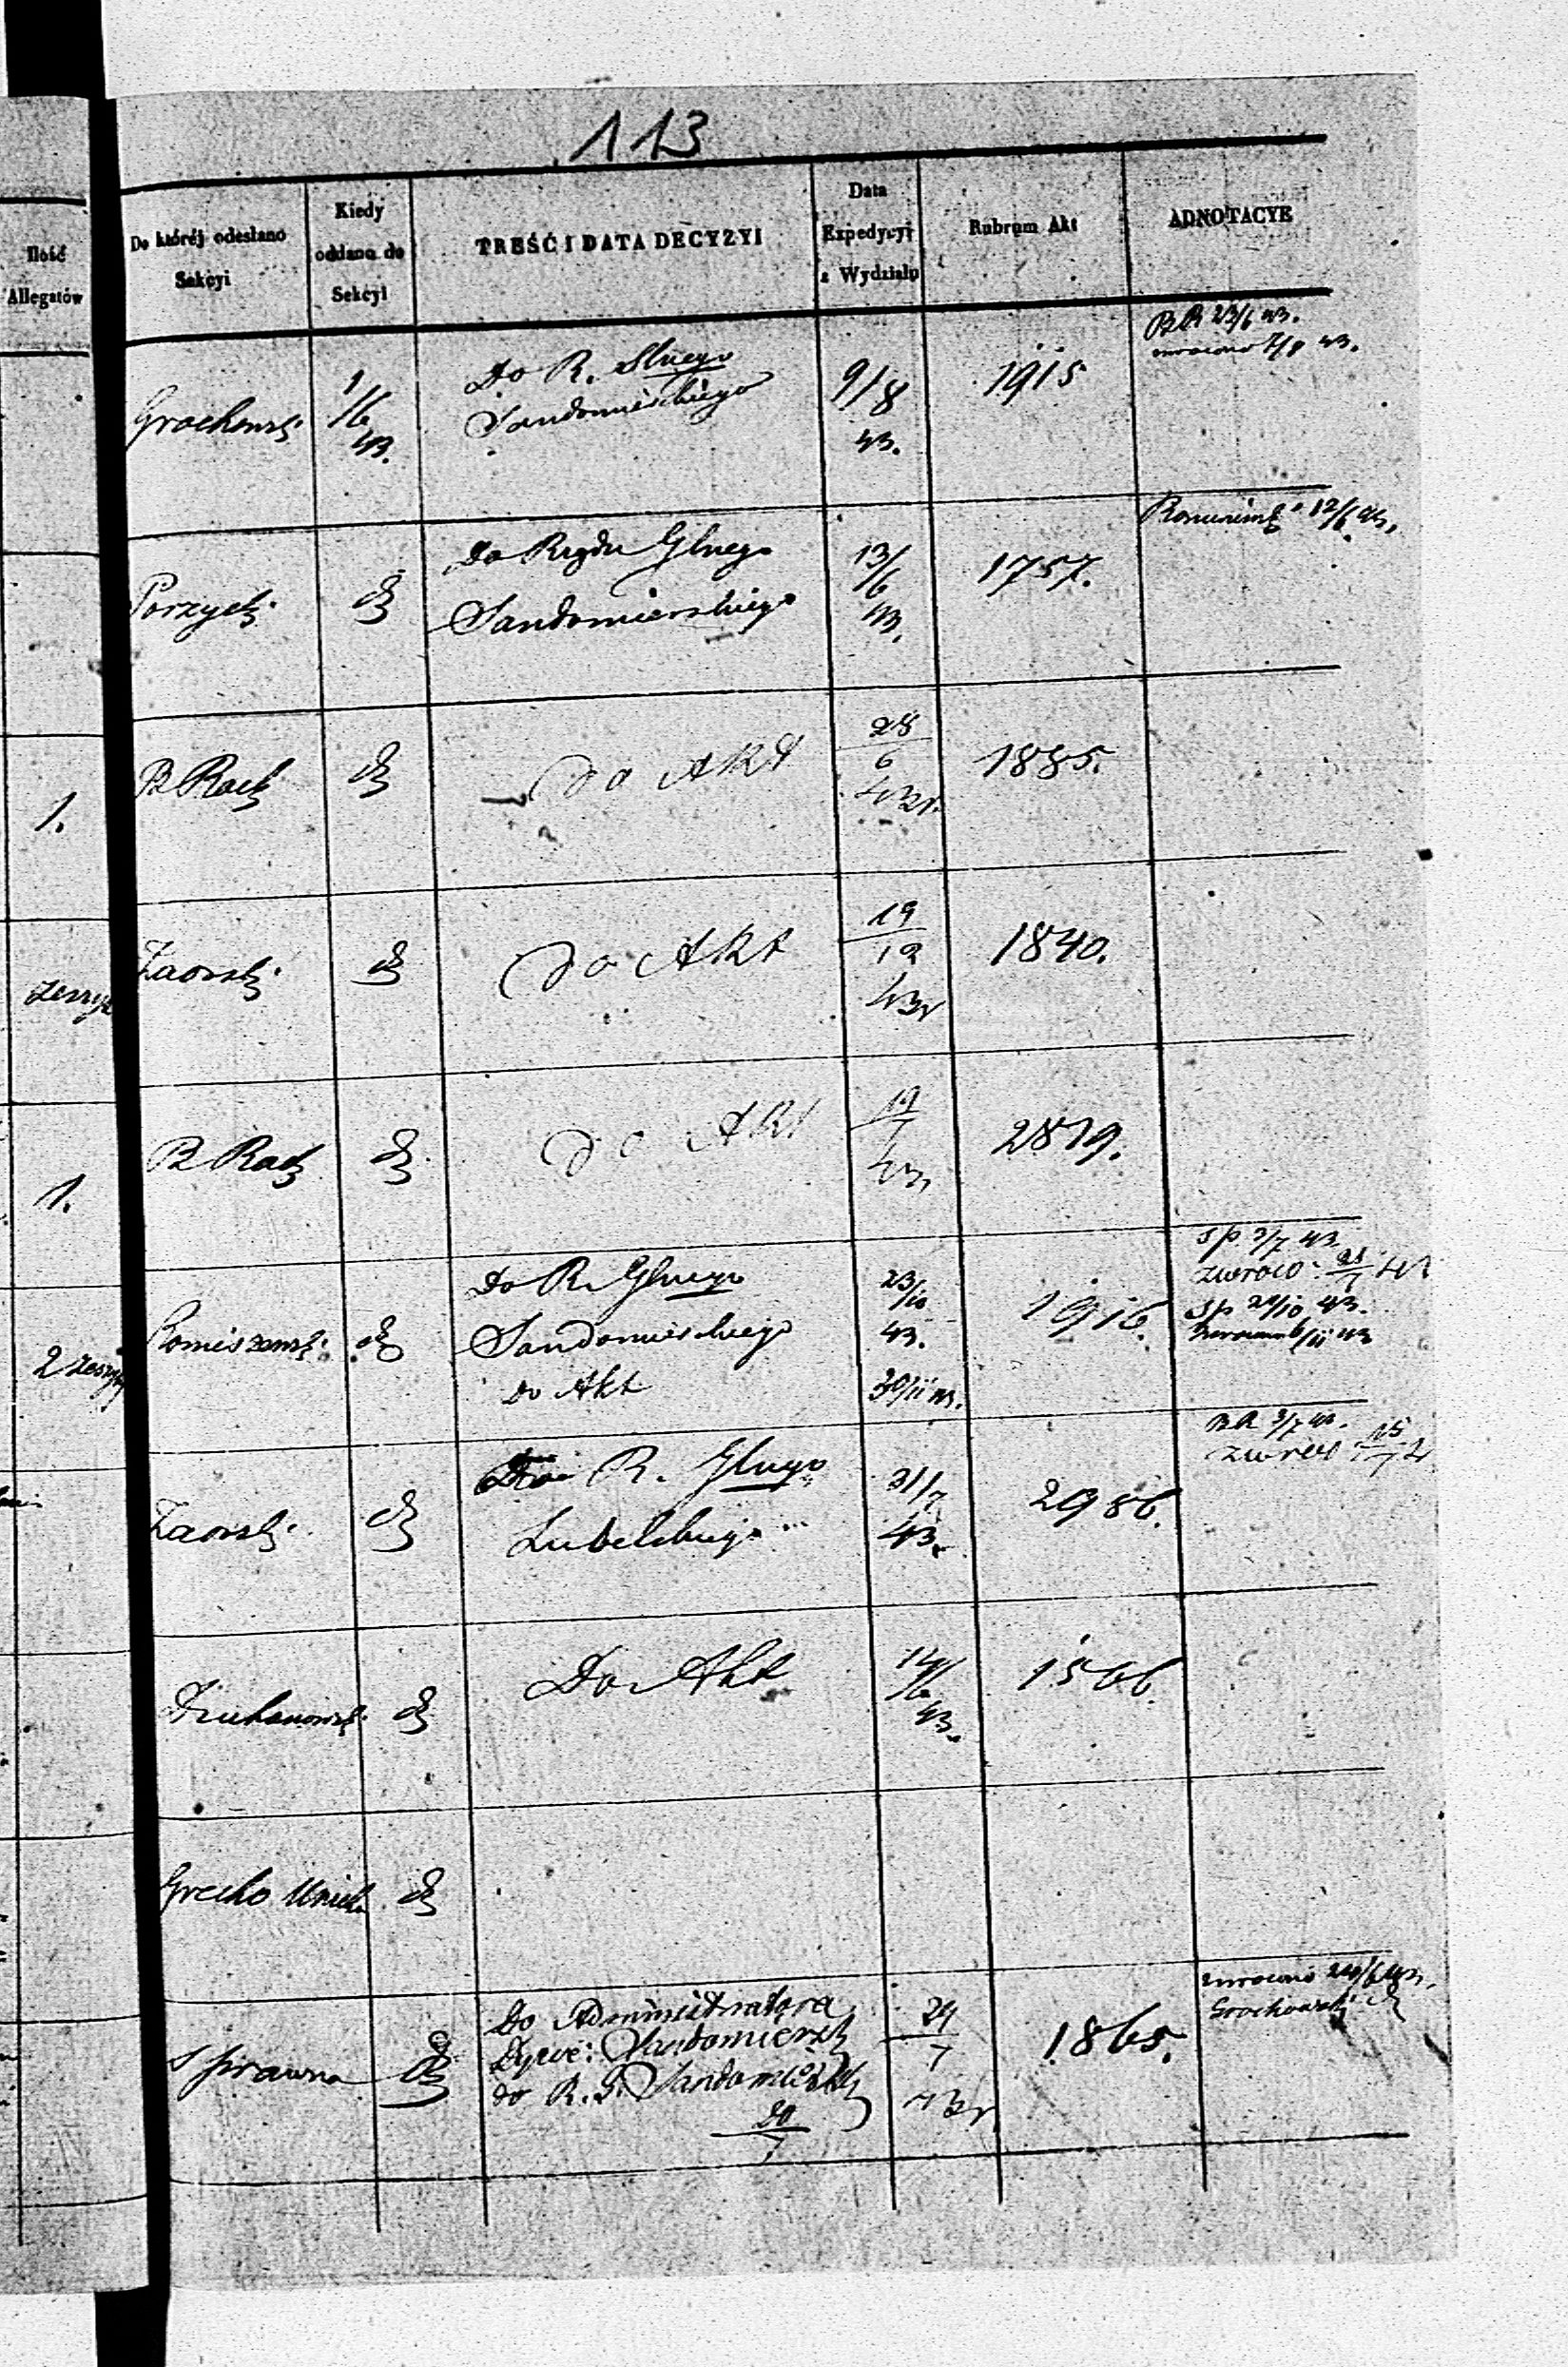 113
Ilość
Allegatów
Do któréj odesłano
Sekcyi
Kiedy
oddano do
Sekcyi
TREŚĆ I DATA DECYZYI
Data
Expedycyi
z Wydziału
Rubrum Akt
ADNOTACYE
Grochowski
1/6
43.
Do R. Glnego
Sandomierskiego
9/8
43.
1915
BR 23/6 43.
zwrócono 7/8 43.
Porzycki
Do Rządu Glnego
Sandomierskiego
13/6
43.
1757.
12/6 43.
1.
B Racz
do Akt
28
6
43 r.
1885.
zeszyt
Zaorski
do Akt
19
12
43 r
1840.
1.
B Racz
do Akt
19
7
43.
2819.
2 zeszyty
Komiszewski
Do R. Glnego
Sandomierskiego
do Akt
23/10
43.
30/11 43.
1916.
Sp. 3/7 43.
Sp 24/10 43.
6/11 43
Zaorski
Do R. Glnego
Lubelskiego
31/7
43.
2986.
BR 3/7 43.
Dziekanowski
Do Akt
14/6
43.
1566.
Grecko Unicka
Sprawna
Do Administratora
Dyec: Sandomierski
do R. G. Sandomierski
20
7
24
7
43r
1865.
zwrócono 24/6 43.
Grochowski